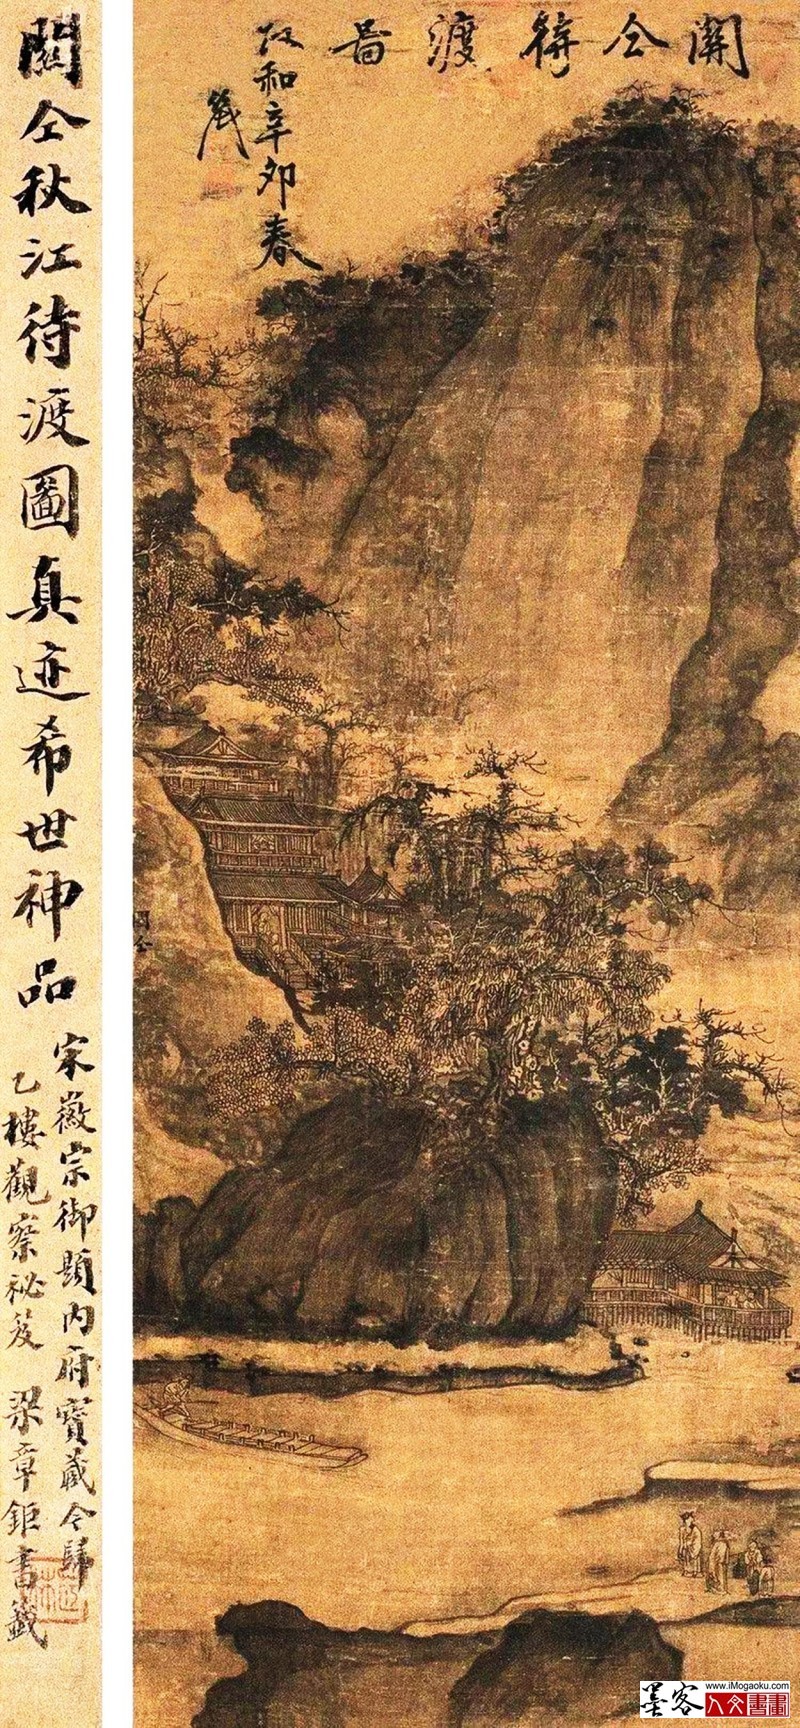 關仝待渡啚
政和辛卯春
關仝秋江待渡圖真迹希世神品
宋徽宗御題内府寶藏今歸
乙樓觀察祕笈 梁章鉅書籤
關仝
墨客
www.iMogaoku.com
人文書畫